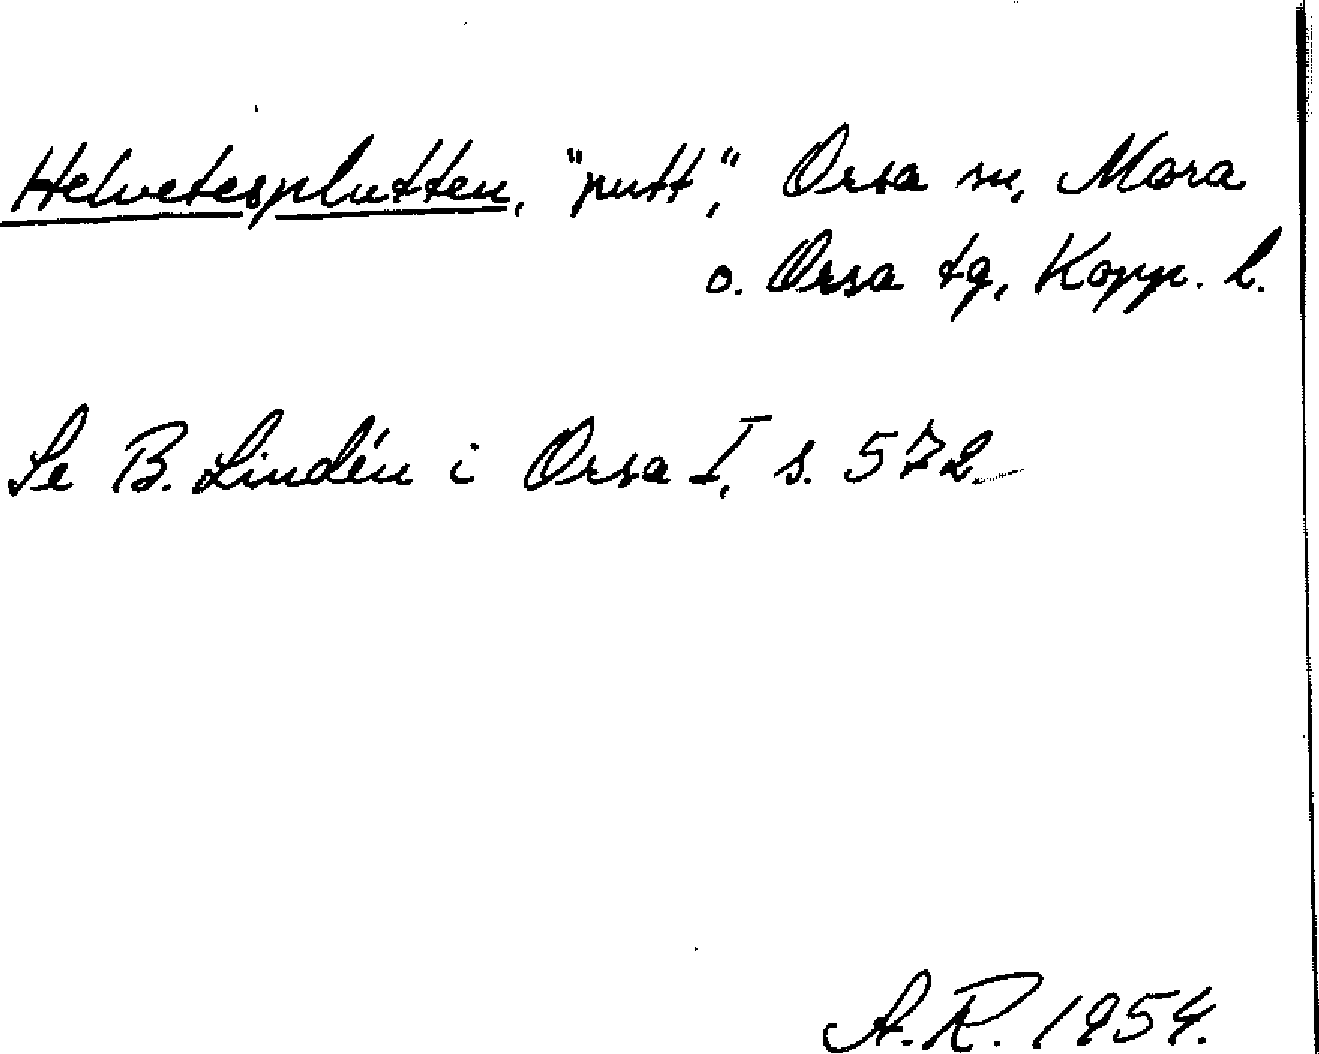 Helvetesplutten, "putt", Orsa sn, Mora
o. Orsa tg, Kopp. l.
Se B. Lindén i Orsa I, s. 572.
A.R. 1954.